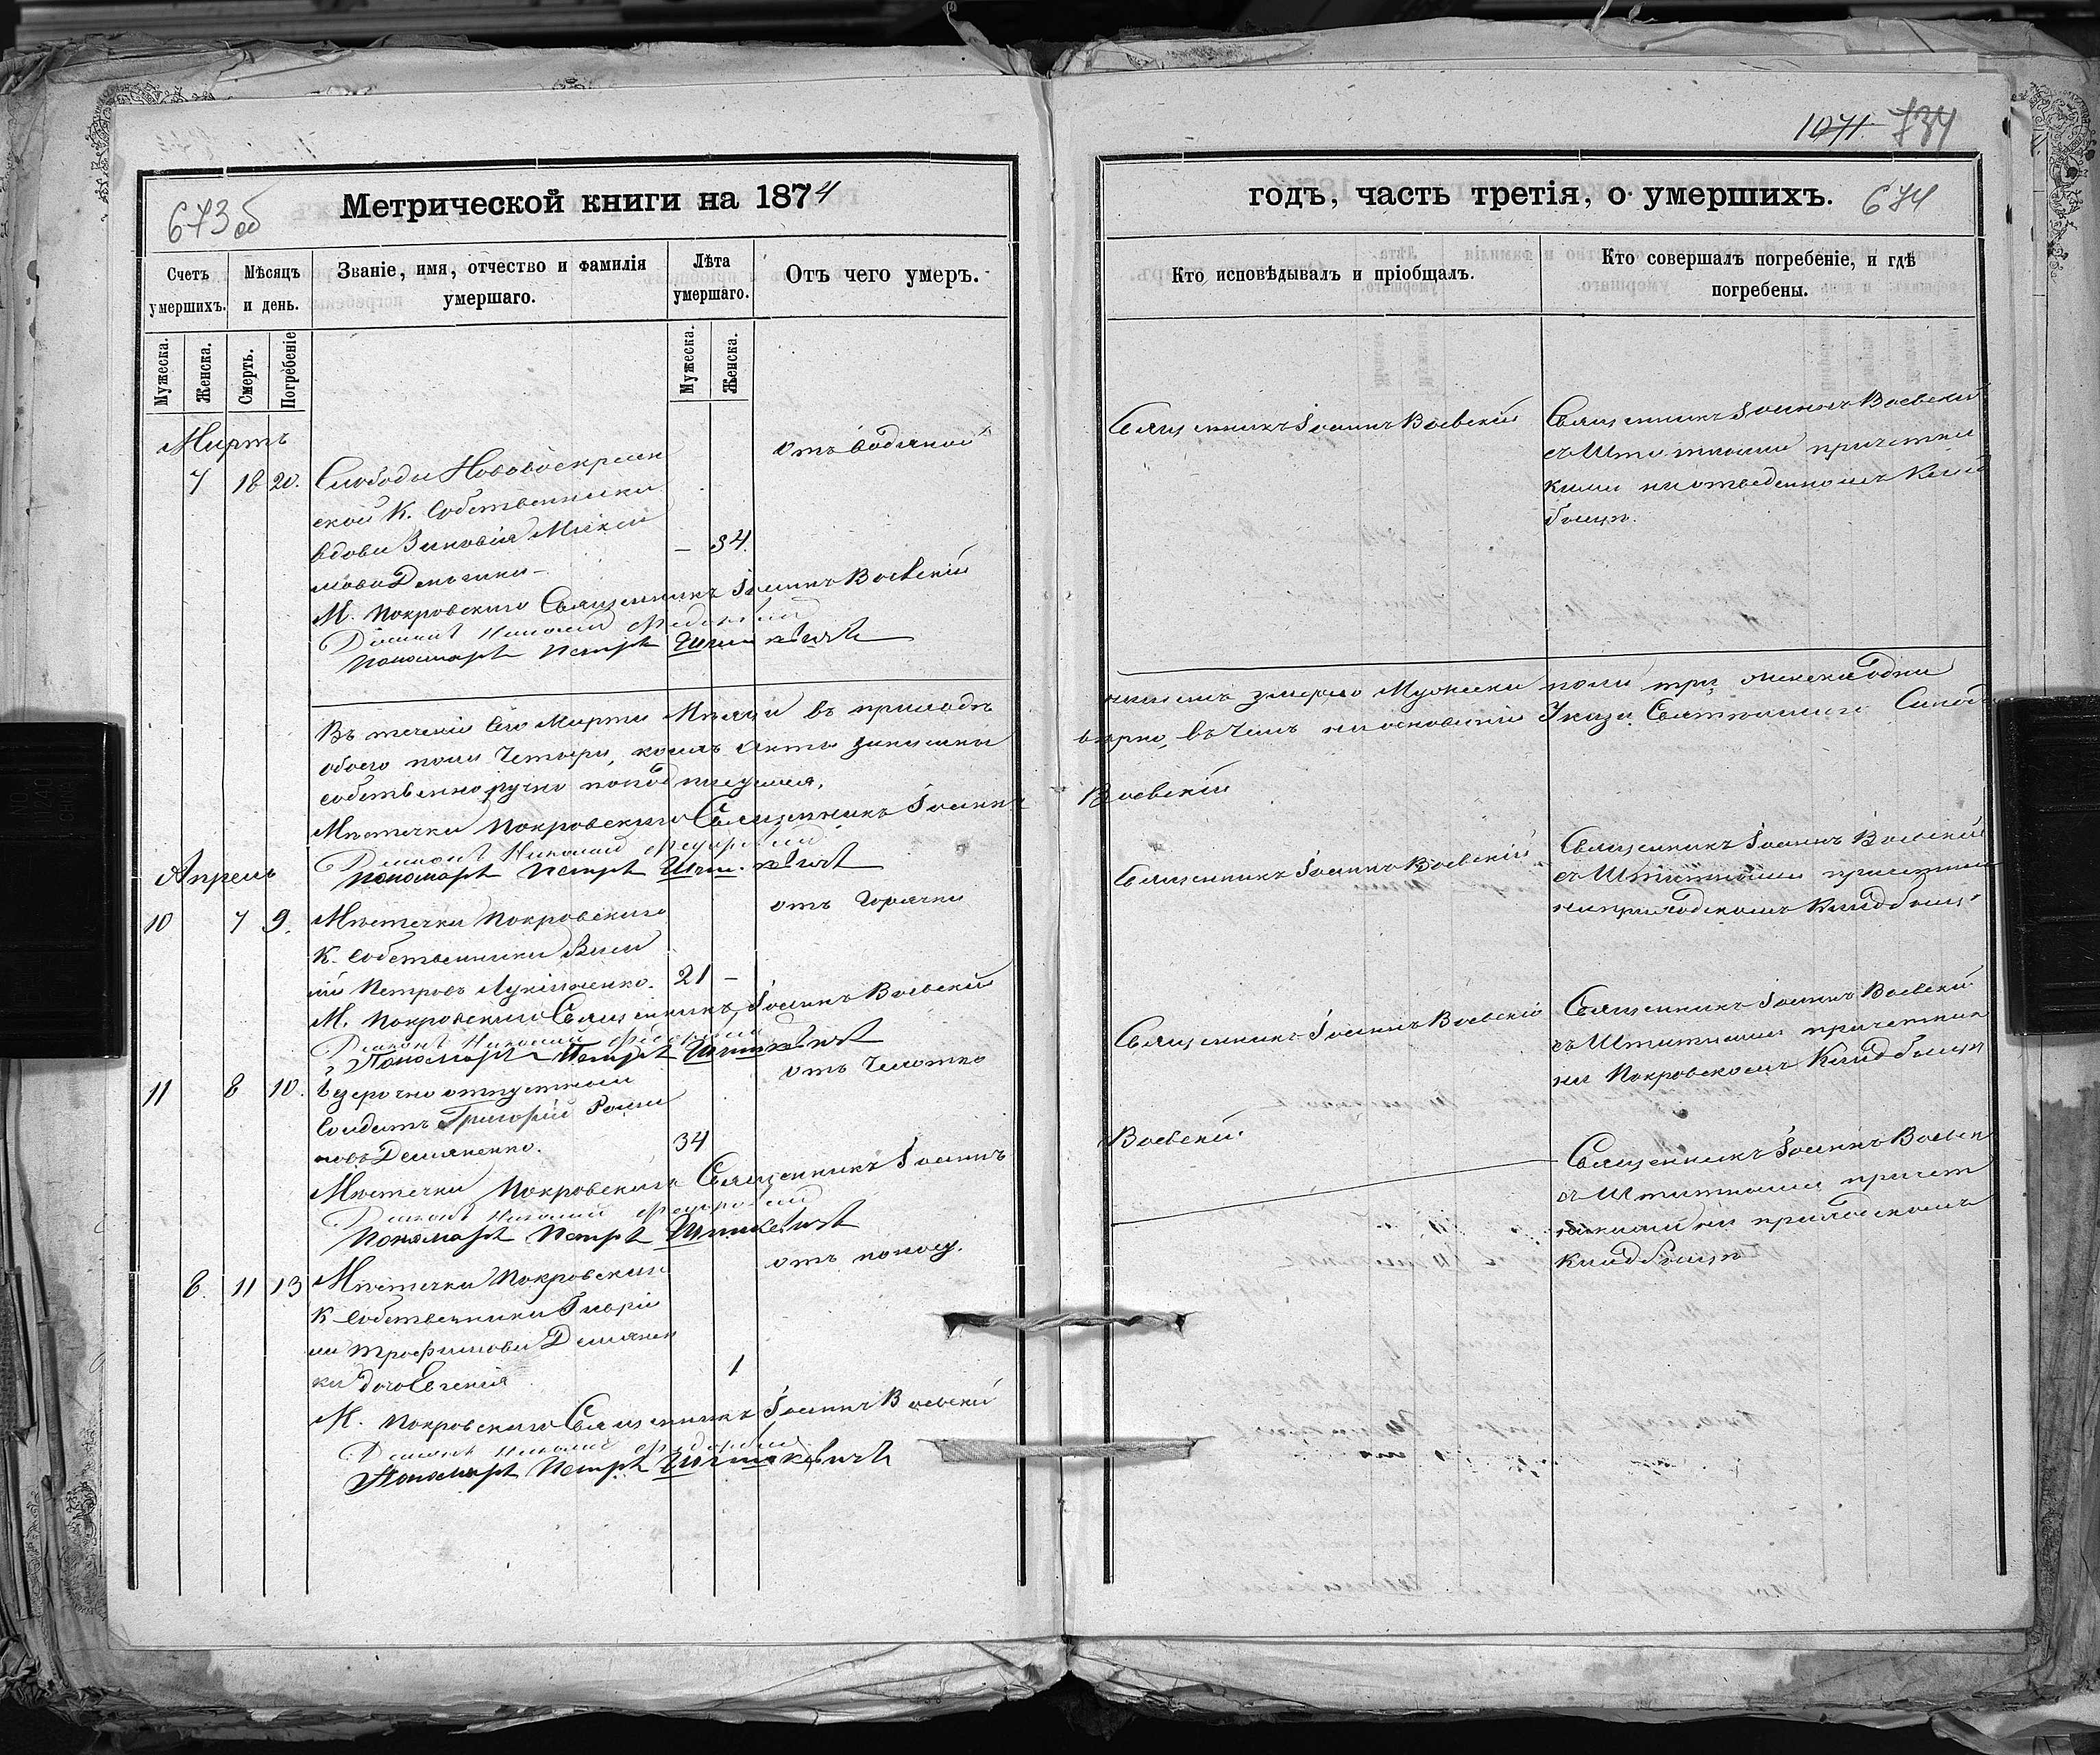 673об
Метрической книги на 1874
Счетъ умершихъ.
Мѣсяцъ и день.
Званіе, имя, отчество и фамилія умершаго.
Лѣта умершаго.
Отъ чего умеръ.
Мужеска.
Женска.
Смерть.
Погребеніе
Мужеска.
Женска.
Мартъ
7 18 20.
Слободы Нововоскресен
ской К. Собственника
вдова Зиновія
— 84.
отъ водяной
М. Покровскаго Священникъ Іоаннъ Воевскій
Діаконъ Николай
Пономарь Петръ
Въ теченіи сего Марта Мѣсяца въ приходѣ
обоего пола Четыре, коихъ Акты записаны
собственноручно
Мѣстечка Покровскаго Священникъ Іоаннъ
Діаконъ Николай
Пономарь Петръ
Апрель
10 7 9.
Мѣстечка Покровскаго
К. Собственника Васи
лій Петровъ Лукіяненко.
21 —
отъ Горячки
М. Покровскаго Священникъ Іоаннъ Воевскій
Діаконъ Николай
Пономарь Петръ
11 8 10.
безсрочно отпустной
Солдатъ Григорій Рома
новъ Демяненко.
34
отъ Чахотки
Мѣстечка Покровскаго Священникъ Іоаннъ
Діаконъ Николай
Пономарь Петръ
8. 11 13
Мѣстечка Покровскаго
К Собственника Гаврії
ла Трофимова Демянен
ка дочь Евгенія
1
отъ поносу.
М. Покровскаго Священникъ Іоаннъ Воевскій
Діаконъ Николай
Пономарь Петръ
1071 734
годъ, часть третія, о умершихъ.
674
Кто исповѣдывалъ и пріобщалъ.
Кто совершалъ погребеніе, и гдѣ погребены.
Священникъ Іоаннъ Воевскій
Священникъ Іоаннъ Воевскій
съ Штатными причетни
ками на отведенномъ Клад
бищѣ.
нашемъ умерло Мужеска пола три женска одна
вѣрно, въ Чемъ на основаніи Указа Святѣйшаго Синода
Воевскій
Священникъ Іоаннъ Воевскій
Священникъ Іоаннъ Воевскій
съ Штатными
на приходскомъ Кладбищѣ
Священникъ Іоаннъ Воевскій
Священникъ Іоаннъ Воевскій
съ Штатными причетник
на Покровскомъ Кладбищѣ
Воевскій
Священникъ Іоаннъ Воевск
съ Штатными причет
никами на приходскомъ
Кладбищѣ